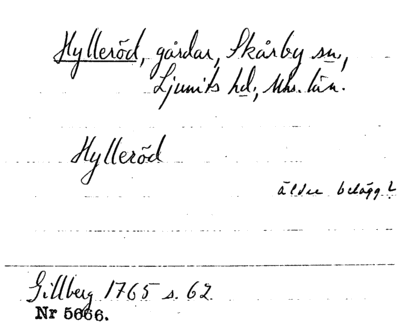 Hylleröd, gårdar, Skårby sn,
Ljunits hd., Mhs. län.
Hylleröd
äldre belägg?
Gillberg 1765 s. 62
Nr 5666.